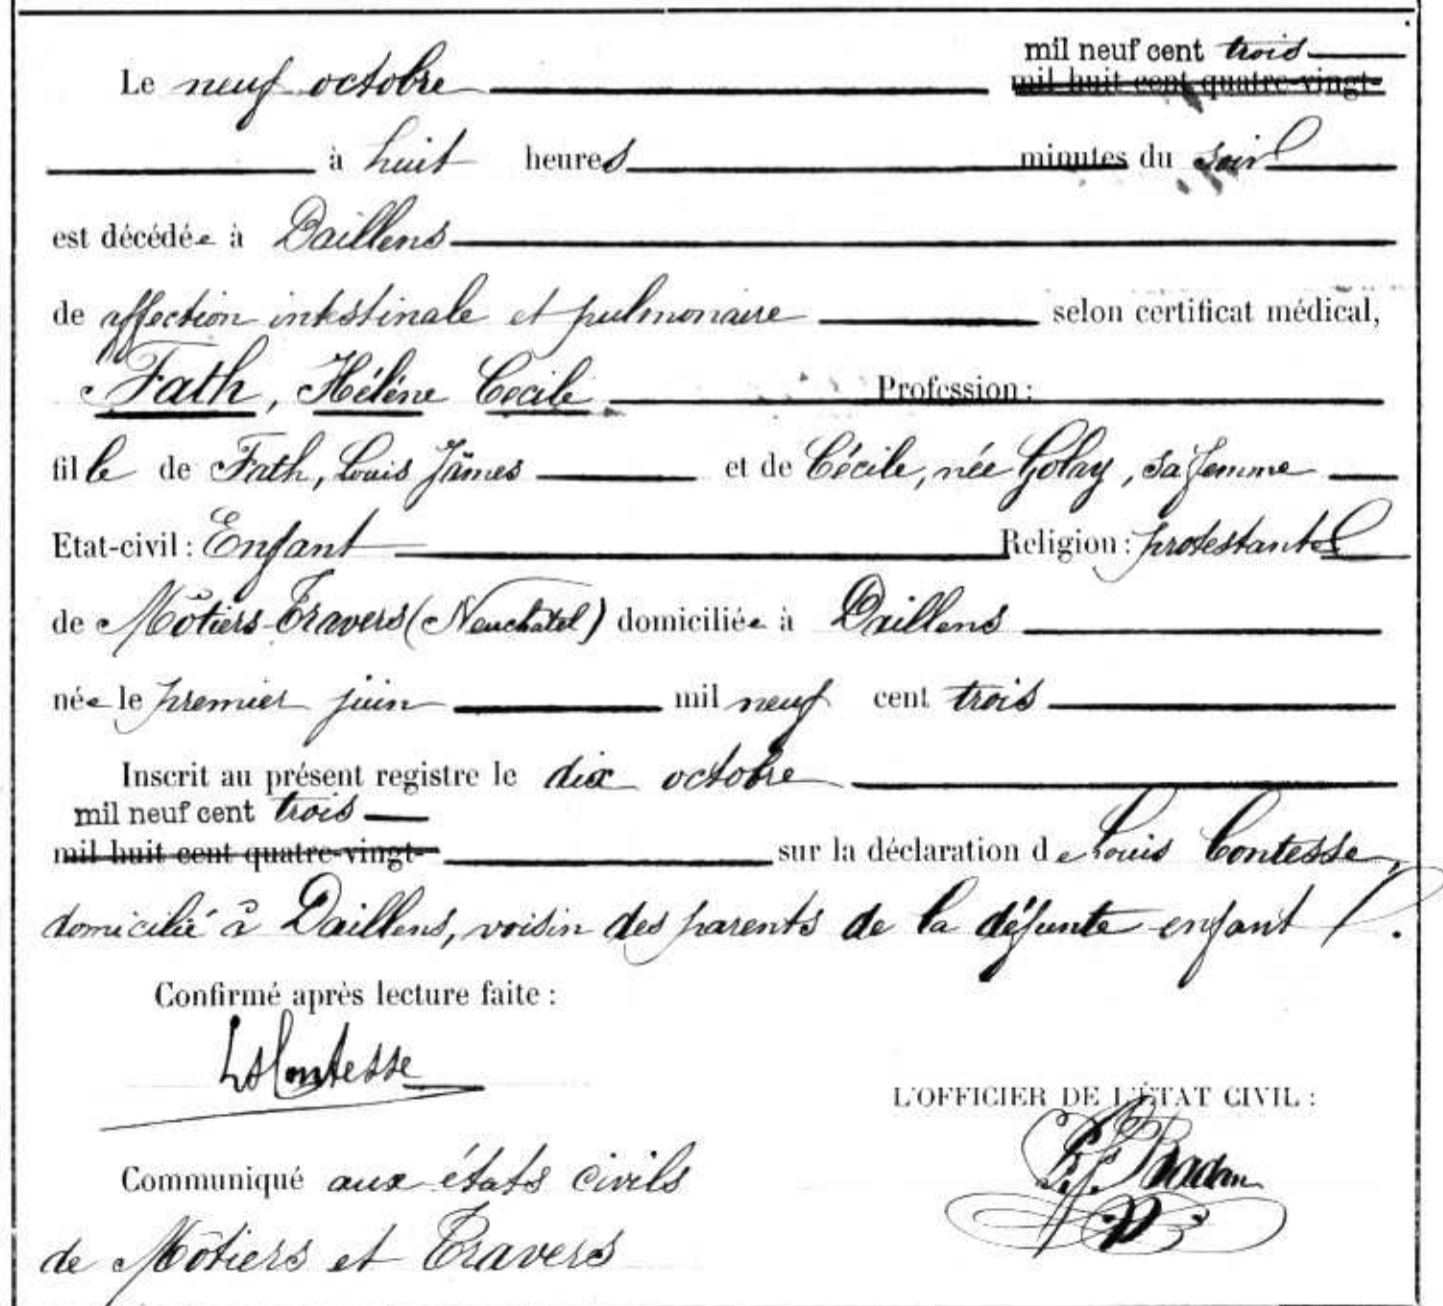 mil neuf cent trois
Le neuf octobre mil huit cent quatre-vingt-
à huit heures minutes du soir
est décédée à Daillens
de affection intestinale et pulmonaire selon certificat médical,
Fath, Hélène Cécile Profession :
fille de Fath, Louis James et de Cécile, née Golay, sa femme
Etat-civil : Enfant Religion : protestante
de Môtiers-Travers (Neuchatel) domiciliée à Daillens
née le premier juin mil neuf cent trois
Inscrit au présent registre le dix octobre
mil neuf cent trois
mil huit cent quatre-vingt- sur la déclaration de Louis Contesse,
domicilié à Daillens, voisin des parents de la défunte enfant.
Confirmé après lecture faite :
Ls Contesse
L'OFFICIER DE L'ÉTAT CIVIL :
Communiqué aux états civils
de Môtiers et Travers